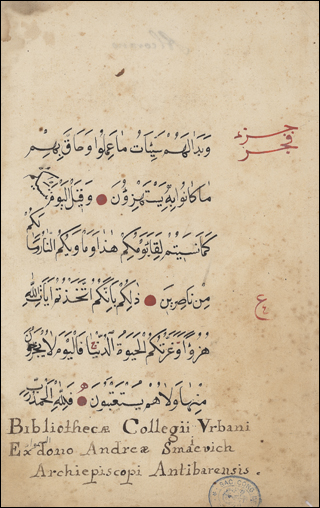 وَبَدَا لَهُمْ سَيِّئَاتُ مَا عَمِلُوا وَحَاقَ بِهِمْ
مَا كَانُوا بِهِ يَسْتَهْزِؤُنَ وَقِيلَ الْيَوْمَ
كَمَا نَسِيتُمْ لِقَاءَ يَوْمِكُمْ هٰذَا وَمَأْوٰيكُمُ النَّارُ وَمَا لَكُمْ
مِنْ نَاصِرِينَ ذٰلِكُمْ بِاَنَّكُمُ اتَّخَذْتُمْ اٰيَاتِ اللّٰهِ
هُزُوًا وَغَرَّتْكُمُ الْحَيٰوةُ الدُّنْيَا فَالْيَوْمَ لَا يُخْرَجُونَ
مِنْهَا وَلَا هُمْ يُسْتَعْتَبُونَ فَلِلّٰهِ الْحَمْدُ رَبِّ
ع
Bibliothecæ Collegii Vrbani
Ex dono Andreæ Smaevich
Archiepiscopi Antibarensis.